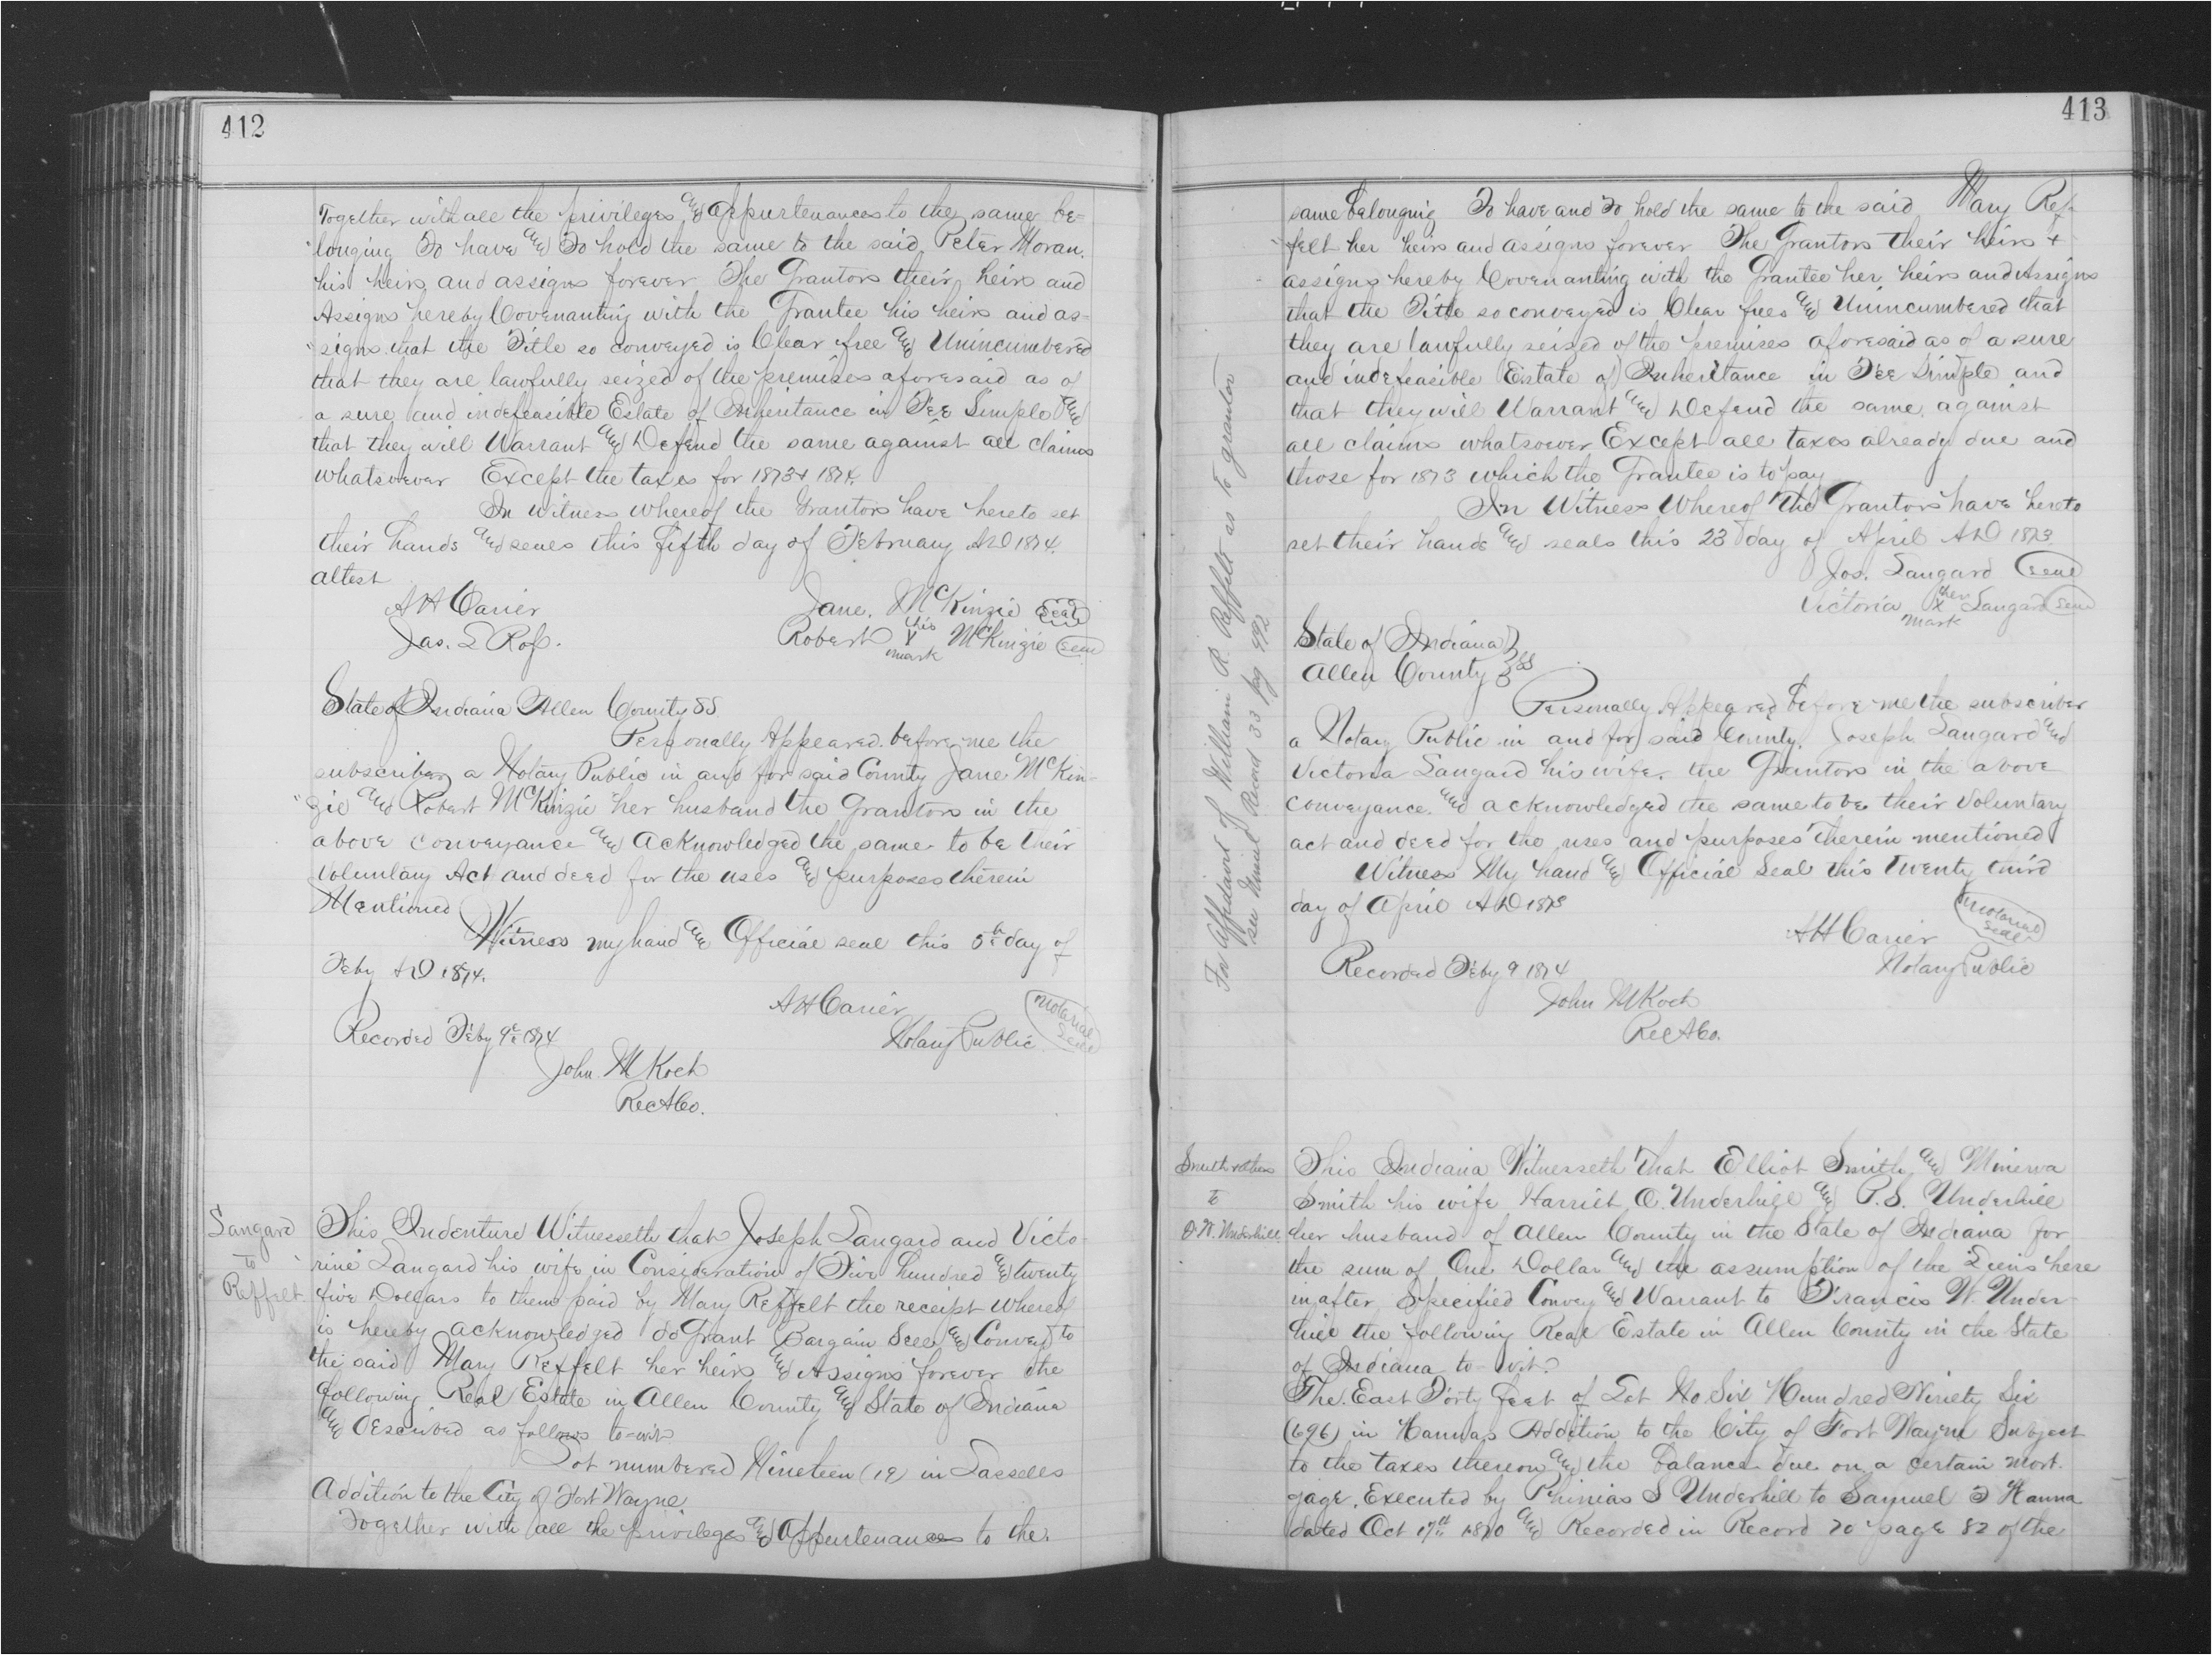 412
Together with all the privileges and appurtenances to the same be=
"longing To have and To hold the same to the said Peter Moran.
his heirs and assigns forever The Grantors their heirs and
Assigns hereby Covenanting with the Grantee his heirs and as=
"signs that the Title so conveyed is Clear free and Unincumbered
that they are lawfully seized of the premises aforesaid as of
a sure and indefeasible Estate of Inheritance in Fee Simple and
that they will Warrant and Defend the same against all claims
whatsoever Except the taxes for 1873 + 1874.
In witness whereof the Grantors have hereto set
their hands and seals this fifth day of February AD 1874.
attest
A H Carier Jane. McKinzie Seal
Jas. L Rof. Robert his X mark McKinzie Seal
State of Indiana Allen County SS
Personally Appeared before me the
subscriber a Notary Public in and for said County Jane McKin-
"zie and Robert McKinzie her husband the Grantors in the
above conveyance and acknowledged the same to be their
voluntary Act and deed for the uses and purposes therein
Mentioned
Witness my hand and Official seal this 5th day of
Feby AD 1874.
A H Carier Notarial Seal
Recorded Feby 9th 1874 Notary Public
John M Koch
Rec A Co.
Sangard
to
Reffelt
This Indenture Witnesseth that Joseph Sangard and Victo-
rine Sangard his wife in Consideration of Five hundred and twenty
five Dollars to them paid by Mary Reffelt the receipt whereof
is hereby acknowledged do Grant Bargain Sell and Convey to
the said Mary Reffelt her heirs and Assigns forever the
following Real Estate in Allen County and State of Indiana
and Described as follows to-wit
Lot numbered Nineteen (19) in Lasselles
Addition to the City of Fort Wayne
Together with all the privileges and Appurtenances to the
413
same belonging To have and To hold the same to the said Mary Ref-
"felt her heirs and assigns forever The Grantors their heirs +
assigns hereby Covenanting with the Grantee her heirs and Assigns
that the Title so conveyed is Clear free and Unincumbered that
they are lawfully seized of the premises aforesaid as of a sure
and indefeasible Estate of Inheritance in Fee Simple and
that they will Warrant and Defend the same against
all claims whatsoever Except all taxes already due and
those for 1873 which the Grantee is to pay
In Witness Whereof the Grantors have hereto
set their hands and seals this 23 day of April AD 1873
Jos. Sangard Seal
Victoria her X mark Sangard Seal
State of Indiana
Allen County SS
Personally Appeared before me the subscriber
a Notary Public in and for said County. Joseph Sangard and
Victoria Sangard his wife. the Grantors in the above
conveyance. and acknowledged the same to be their Voluntary
act and deed for the uses and purposes therein mentioned
Witness My hand and Official Seal this Twenty third
day of April AD 1873
A H Carier Notarial Seal
Recorded Feby 9 1874 Notary Public
John M Koch
Rec A Co.
For Affidavit of William R. Reffelt as to grantor
see Miscel Record 33 pag 492
Smith + others
to
F. W. Underhill
This Indiana Witnesseth That Elliot Smith and Minerva
Smith his wife Harriet O. Underhill and P. S. Underhill
her husband of Allen County in the State of Indiana for
the sum of One Dollar and the assumption of the Liens here
inafter Specified Convey and Warrant to Francis W. Under-
hill the following Real Estate in Allen County in the State
of Indiana to-wit.
The East Forty feet of Lot No Six Hundred Ninety Six
(696) in Hannas Addition to the City of Fort Wayne Subject
to the taxes thereon and the balance due on a certain mort-
gage. Executed by Phinias S Underhill to Samuel T Hanna
dated Oct 17th 1870 and Recorded in Record 20 page 82 of the